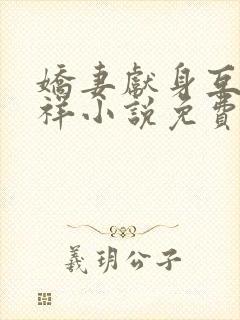 嬌妻獻身互
祥小說免費
羲玥公子